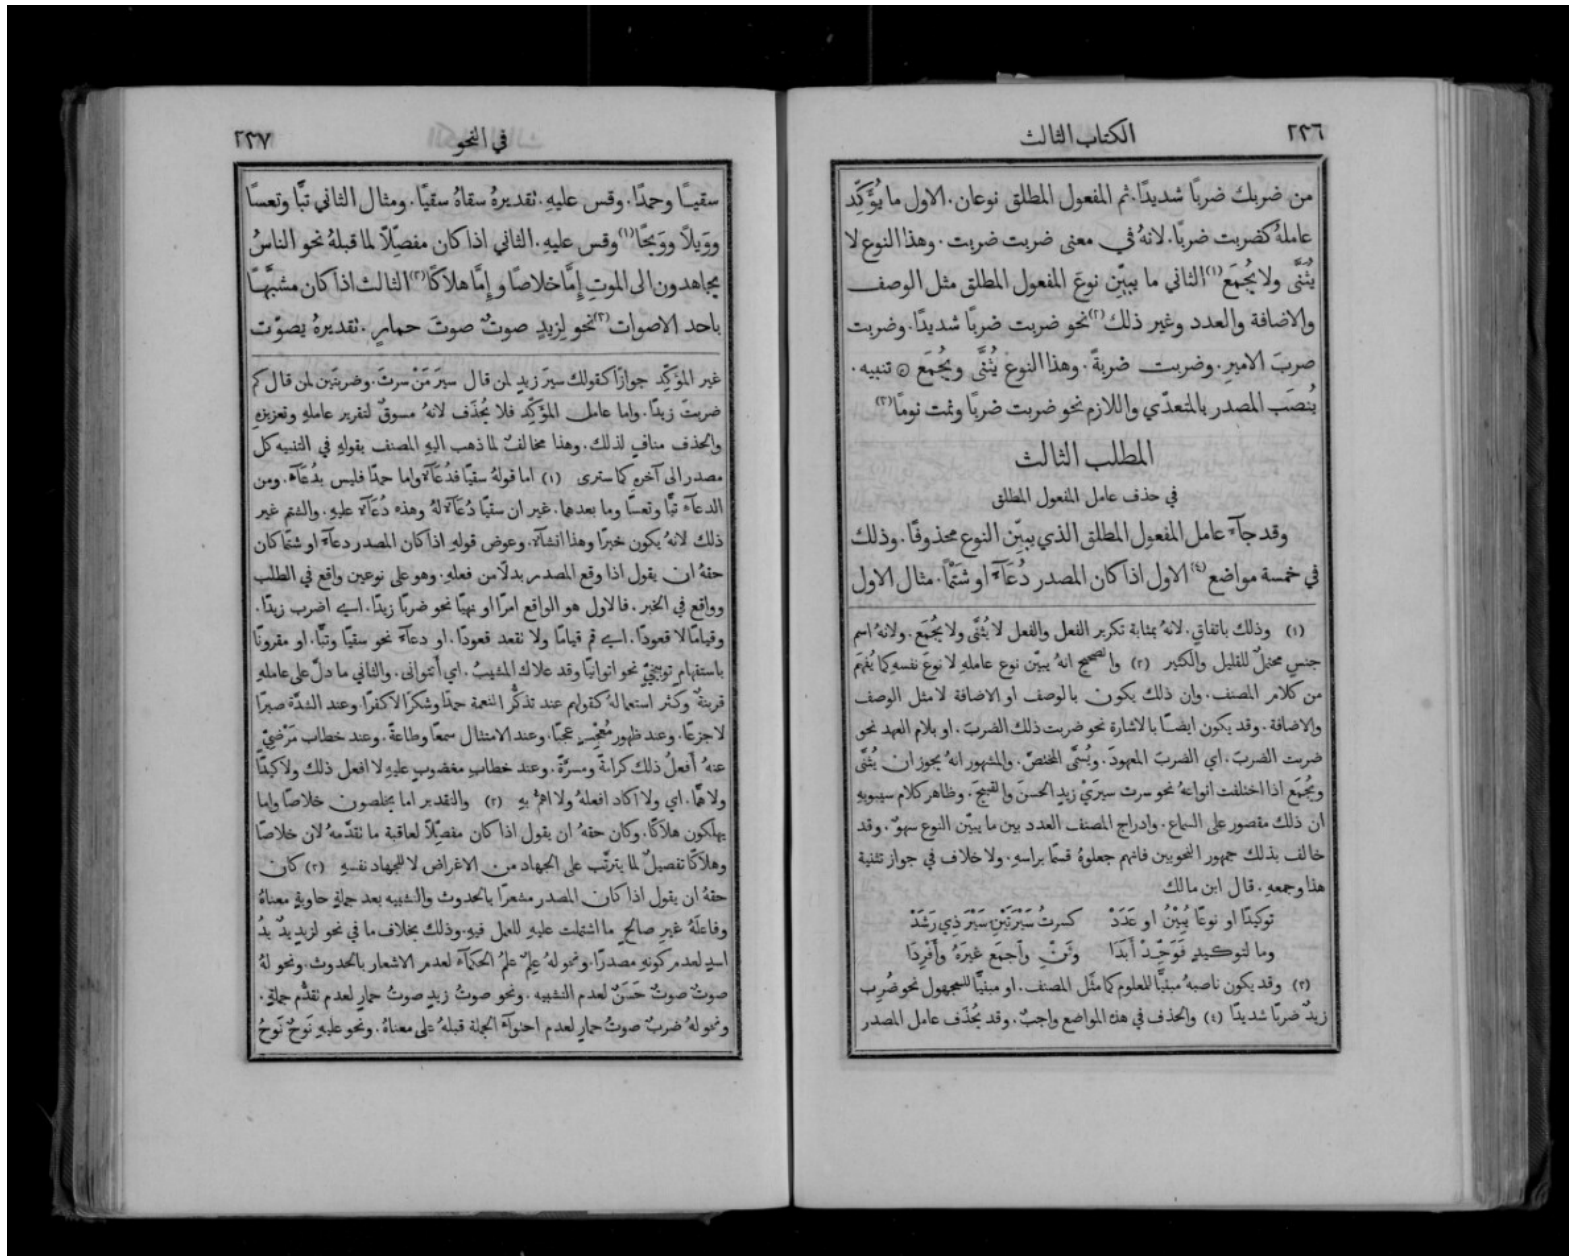 ٢٣٦
الكتاب الثالث
من ضربك ضربًا شديدًا. ثم المفعول المطلق نوعان. الاول ما يُؤَكِّد
عاملهُ كضربت ضربًا. لانهُ في معنى ضربت ضربت. وهذا النوع لا
يُثنَّى ولا يُجْمَع (١) الثاني ما يبيِّن نوعَ المفعول المطلق مثل الوصف
والاضافة والعدد وغير ذلك (٢) نحو ضربت ضربًا شديدًا. وضربت
ضربَ الاميرِ. وضربت ضربةً. وهذا النوع يُثنَّى ويُجْمَع ۞ تنبيه.
يُنصَب المصدر بالمتعدّي واللازم نحو ضربت ضربًا ونمت نومًا (٣)
المطلب الثالث
في حذف عامل المفعول المطلق
وقد جآءَ عامل المفعول المطلق الذي يبيِّن النوع محذوفًا. وذلك
في خمسة مواضع (٤) الاول اذا كان المصدر دُعَآءً او شَتْمًا. مثال الاول
(١) وذلك باتفاقٍ. لانهُ بمثابة تكرير الفعل والفعل لا يُثنَّى ولا يُجْمَع. ولانهُ اسم
جنسٍ محتملٌ للقليل والكثير (٢) والصحيح انهُ يبيّن نوع عاملهِ لا نوعَ نفسهِ كما يُفهَم
من كلام المصنف. وان ذلك يكون بالوصف او الاضافة لا مثل الوصف
والاضافة. وقد يكون ايضًا بالاشارة نحو ضربت ذلك الضربَ. او بلام العهد نحو
ضربت الضربَ. اي الضربَ المعهودَ. ويُسمَّى المختصّ. والمشهور انهُ يجوز ان يُثنَّى
ويُجْمَع اذا اختلفت انواعهُ نحو سرت سيرَيْ زيدٍ الحسنَ والقبيحَ. وظاهر كلام سيبويهِ
ان ذلك مقصور على السماع. وادراج المصنف العدد بين ما يبيّن النوع سهوٌ. وقد
خالف بذلك جمهور النحويين فانهم جعلوهُ قسمًا براسهِ. ولا خلاف في جواز تثنية
هذا وجمعهِ. قال ابن مالك
توكيدًا او نوعًا يُبِيْنُ او عَدَدْ كسرتُ سَيْرَتَيْنِ سَيْرَ ذِي رَشَدْ
وما لتوكيدٍ فَوَحِّدْ أَبَدَا وثَنِّ وٱجمَع غيرَهُ وأَفْرِدَا
(٣) وقد يكون ناصبهُ مبنيًّا للمعلوم كما مثَّل المصنف. او مبنيًّا للمجهول نحو ضُرِب
زيدٌ ضربًا شديدًا (٤) والحذف في هذه المواضع واجبٌ. وقد يُحذَف عامل المصدر
٢٣٧
في النحو
سقيًا وحمدًا. وقس عليهِ. تقديرهُ سقاهُ سقيًا. ومثال الثاني تبًّا وتعسًا
وويلًا وويحًا (١) وقس عليهِ. الثاني اذا كان مفصِّلًا لما قبلهُ نحو الناسُ
يجاهدون الى الموتِ إِمَّا خلاصًا وإِمَّا هلاكًا (٢) الثالث اذا كان مشبَّهًا
باحد الاصوات (٣) نحو لِزيدٍ صوتٌ صوتَ حمارٍ. تقديرهُ يصوّت
غير المؤَكِّد جوازًا كقولك سيرَ زيدٍ لمن قال سيرَ مَنْ سرتَ. وضربتَين لمن قال كم
ضربتَ زيدًا. واما عامل المؤَكِّد فلا يُحذَف لانهُ مسوقٌ لتقرير عاملهِ وتعزيزهِ
والحذف منافٍ لذلك. وهذا مخالفٌ لما ذهب اليهِ المصنف بقولهِ في التنبيه كل
مصدر الى آخرهِ كما سترى (١) اما قولهُ سقيًا فدُعَآءٌ واما حمدًا فليس بدُعَآءٍ. ومن
الدعآء تبًّا وتعسًا وما بعدهما. غير ان سقيًا دُعَآءٌ لهُ وهذه دُعَآءٌ عليهِ. والشتم غير
ذلك لانهُ يكون خبرًا وهذا انشآءٌ. وعوض قولهِ اذا كان المصدر دعآءً او شتمًا كان
حقهُ ان يقول اذا وقع المصدر بدلًا من فعلهِ. وهو على نوعين واقع في الطلب
وواقع في الخبر. فالاول هو الواقع امرًا او نهيًا نحو ضربًا زيدًا. اي اضرب زيدًا.
وقيامًا لا قعودًا. اي قم قيامًا ولا تقعد قعودًا. او دعآءً نحو سقيًا وتبًّا. او مقرونًا
باستفهامٍ توبيخيّ نحو اتوانيًا وقد علاك المشيبُ. اي أتتوانى. والثاني ما دلّ على عاملهِ
قرينةٌ وكثر استعمالهُ كقولهم عند تذكُّر النعمة حمدًا وشكرًا لا كفرًا. وعند الشدّة صبرًا
لا جزعًا. وعند ظهور مُعْجِبٍ عجبًا. وعند الامتثال سمعًا وطاعةً. وعند خطاب مَرْضِيّ
عنهُ أَفعلُ ذلك كرامةً ومسرَّةً. وعند خطاب مغضوبٍ عليهِ لا افعل ذلك ولا كيدًا
ولا همًّا. اي ولا اكاد افعلهُ ولا اهمّ بهِ (٢) والتقدير اما يخلصون خلاصًا واما
يهلكون هلاكًا. وكان حقهُ ان يقول اذا كان مفصِّلًا لعاقبة ما تقدّمهُ لان خلاصًا
وهلاكًا تفصيلٌ لما يترتَّب على الجهاد من الاغراض لا للجهاد نفسهِ (٣) كان
حقهُ ان يقول اذا كان المصدر مشعرًا بالحدوث والتشبيه بعد جملةٍ حاويةٍ معناهُ
وفاعلَهُ غير صالحٍ ما اشتملت عليهِ للعمل فيهِ. وذلك بخلاف ما في نحو لزيدٍ يدٌ يدُ
اسدٍ لعدم كونهِ مصدرًا. ونحو لهُ عِلمٌ عِلمُ الحكمآء لعدم الاشعار بالحدوث. ونحو لهُ
صوتٌ صوتٌ حَسَنٌ لعدم التشبيه. ونحو صوتُ زيدٍ صوتُ حمارٍ لعدم تقدُّم جملةٍ.
ونحو لهُ ضربٌ صوتُ حمارٍ لعدم احتوآء الجملة قبلهُ على معناهُ. ونحو عليهِ نَوحٌ نَوحُ